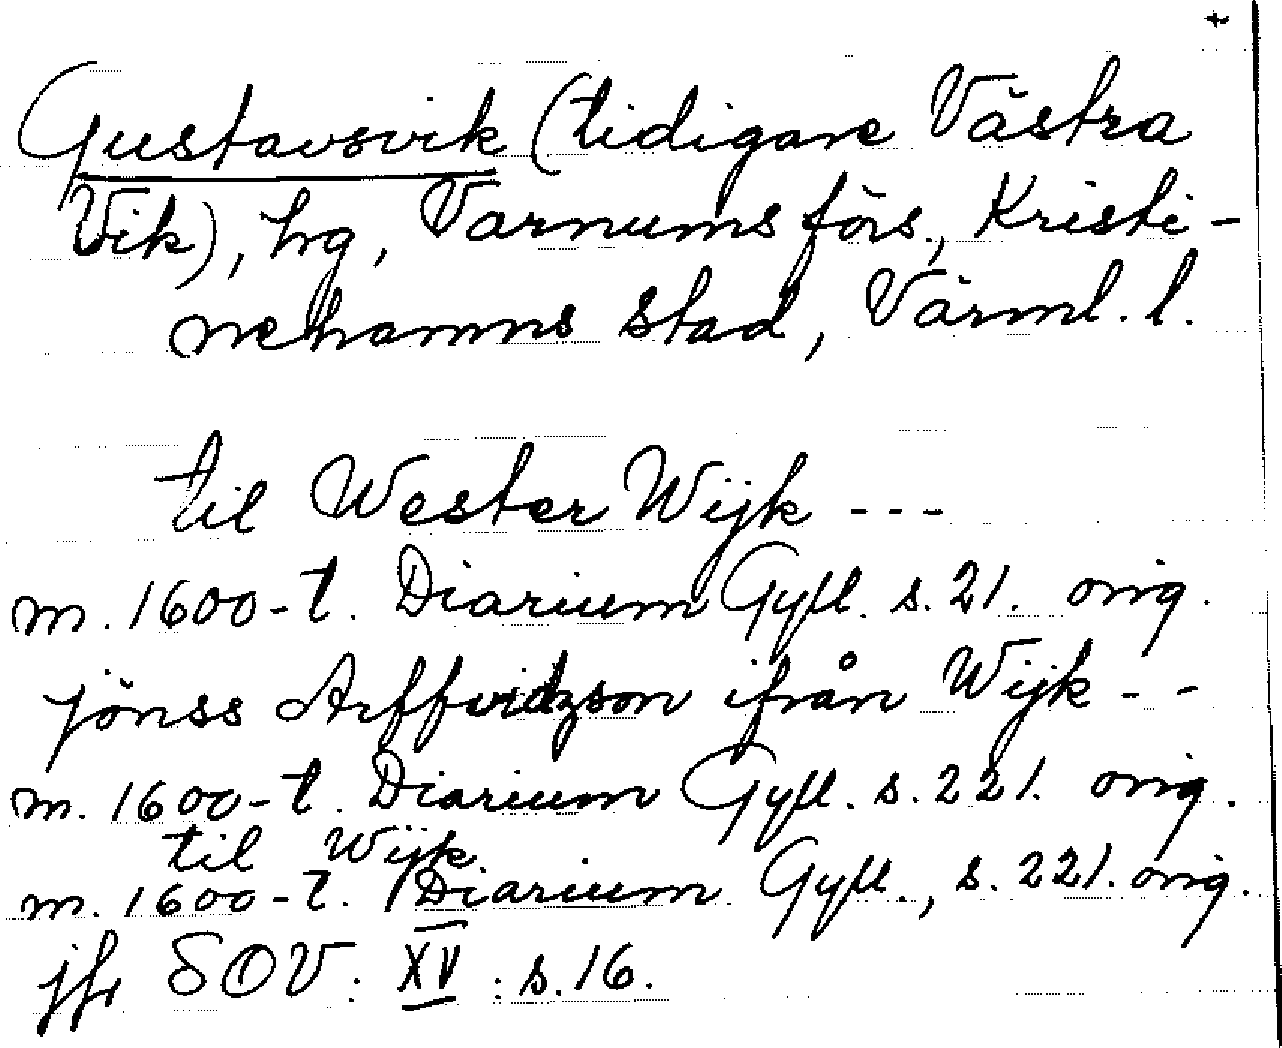 Gustavsvik (tidigare Västra
Vik), hg, Varnums förs., Kristi-
nehamns stad, Värml. l.
til Wester Wijk ---
m. 1600-t. Diarium Gyll. s. 21. orig.
jönss Arffvidzson ifrån Wijk --
m. 1600-t. Diarium Gyll. s. 221. orig.
til Wijk.
m. 1600-t. Diarium Gyll., s. 221. orig.
jfr SOV: XV: s. 16.